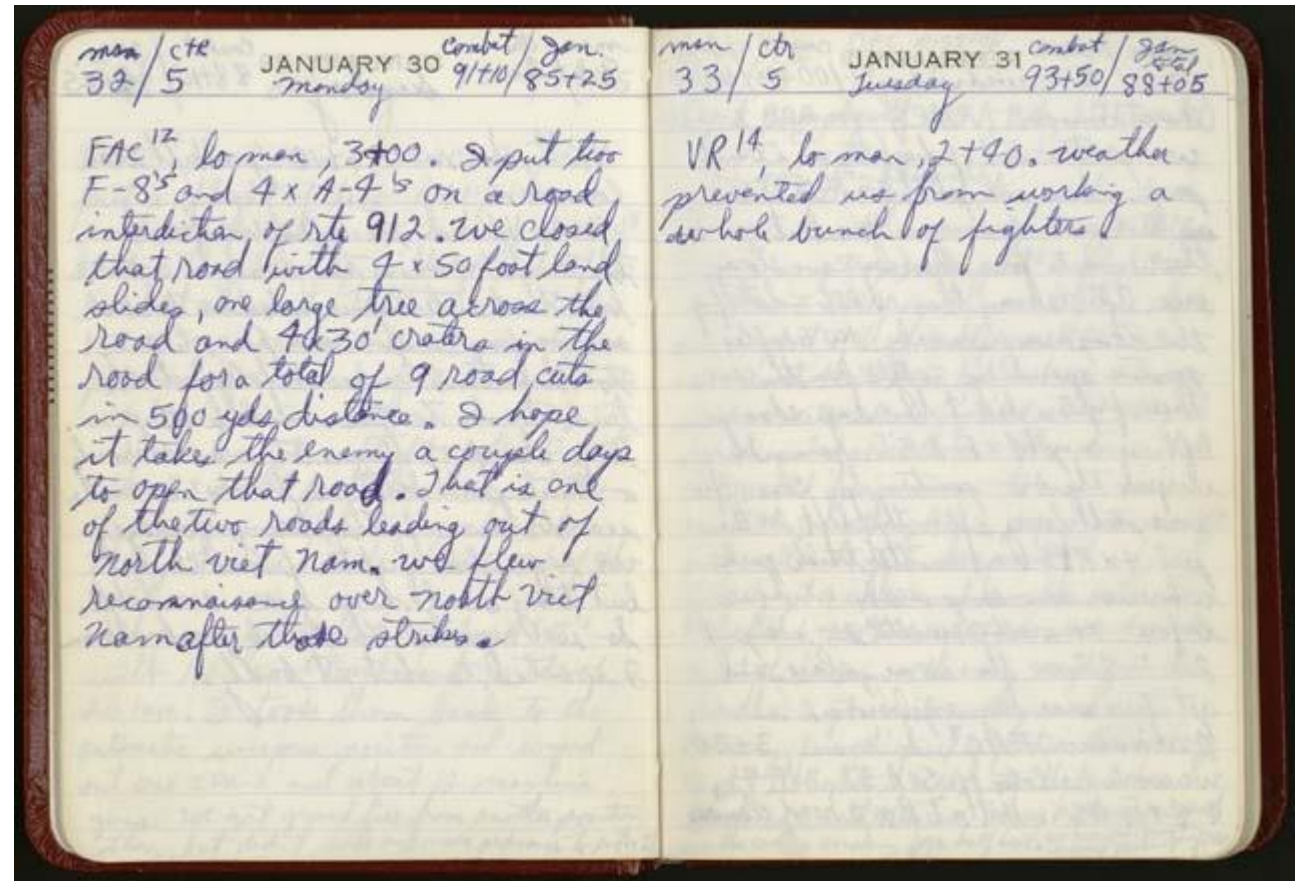 msn / ctr JANUARY 30 combat / Jan.
32 / 5 Monday 91+10 / 85+25
FAC 12, lo man, 3+00. I put two
F-8's and 4 x A-4's on a road
interdiction, of rte 912. We closed
that road with 4 x 50 foot land
slides, one large tree across the
road and 4x30' craters in the
road for a total of 9 road cuts
in 500 yds distance. I hope
it takes the enemy a couple days
to open that road. That is one
of the two roads leading out of
North Viet Nam. We flew
over North Viet
Nam after those strikes.
msn / ctr JANUARY 31 combat / Jan total
33 / 5 Tuesday 93+50 / 88+05
VR 14, lo man, 2+40. Weather
prevented us from working a
whole bunch of fighters.